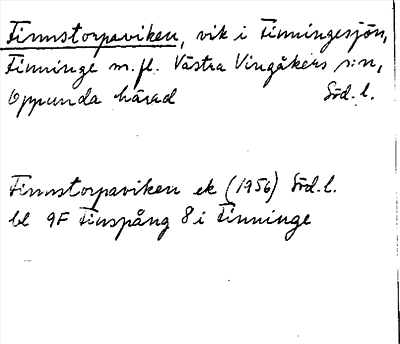 Finnstorpaviken, vik i Finningesjön,
Finninge m.fl. Västra Vingåkers s:n,
Oppunda härad Söd. l.
Finnstorpaviken ek (1956) Söd. l.
bl 9F Finspång 8 i Finninge